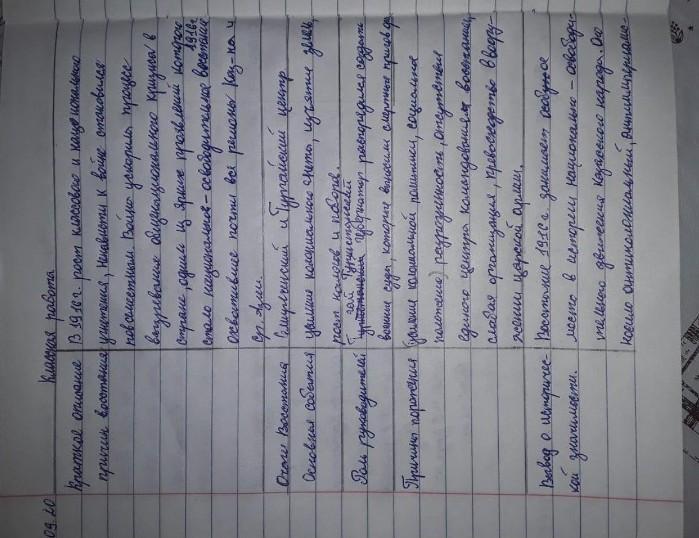 09.20
Классная работа
Краткое описание
причин восстания
В 1916 г. рост классового и национального
угнетения, ненависти к войне становился
повсеместным. Война ускорила процесс
вызревания общенационального кризиса в
стране, одним из ярких проявлений которого
стало национально-освободительное восстание 1916 г.
охватившее почти все регионы Каз-на и
ср. Азии.
Очаги Восстания
Семиреченский и Тургайский центр
Основные события
усиление колониального гнета, изъятие земель,
рост налогов и поборов.
Роль руководителей
Туркестанский губернатор распорядился создать
военные суды, которые выносили смертные приговоры.
Причины поражения
(усиление колониальной политики, социальное
положение) разрозненность, отсутствие
единого центра командования восстания,
слабая организация, превосходство в воору-
жении царской армии.
Вывод о историчес-
кой значимости.
Восстание 1916 г. занимает особое
место в истории национально-освободи-
тельного движения казахского народа. Оно
носило антиколониальный, антиимпериали-